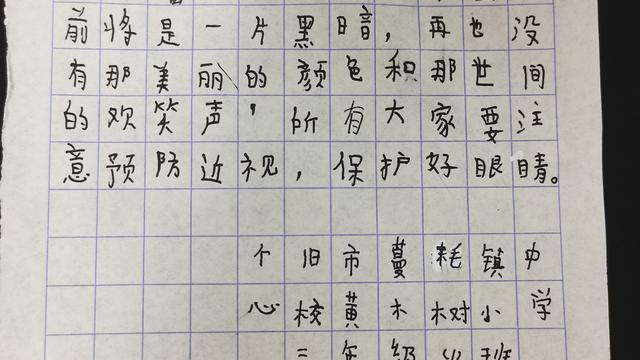 前将是一片黑暗，再也没
有那美丽的颜色和那世间
的欢笑声，所有大家要注
意预防近视，保护好眼睛。
个旧市蔓耗镇中
心校黄木树小学
三年级少班